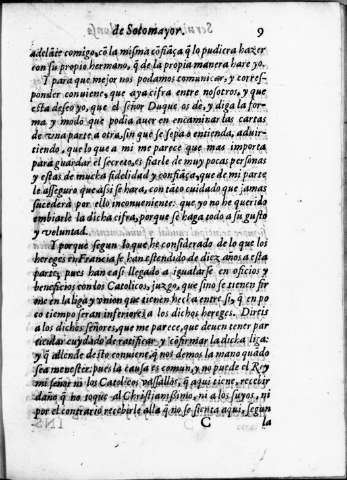 de Sotomayor. 9
adelãte comigo, cõ la misma cõfiãça q̃ lo pudiera hazer
con su propio hermano, q̃ de la propia manera hare yo.
Y para que mejor nos podamos comunicar, y corres-
ponder conuiene, que aya cifra entre nosotros, y que
esta deseo yo, que el señor Duque os de, y diga la for-
ma y modo que podia auer en encaminar las cartas
de vna parte a otra, sin que se sepa o entienda, aduir-
tiendo, que lo que a mi me parece que mas importa
para guardar el secreto, es fiarle de muy pocas personas
y estas de mucha fidelidad y confiãça, que de mi parte
le asseguro que assi se hara, con tãto cuidado que jamas
sucederà por ello inconueniente: que yo no he querido
embiarle la dicha cifra, porque se haga todo a su gusto
y voluntad.
Y porque segun lo que he considerado de lo que los
hereges en Francia se han estendido de diez años a esta
parte, pues han casi llegado a igualarse en oficios y
beneficios con los Catolicos, juzgo, que sino se tienen fir
me en la liga y vnion que tienen hecha entre si, q̃ en po
co tiempo seran inferiores a los dichos hereges. Direis
a los dichos señores, que me parece, que deuen tener par
ticular cuydado de ratificar y cõfirmar la dicha liga:
y q̃ allende desto conuiene, q̃ nos demos la mano quãdo
sea menester: pues la causa es comun, y no puede el Rey
mi señor ni los Catolicos vassallos, q̃ aqui tiene, recebir
daño q̃ no toque al Christianissimo, ni a los suyos, ni
por el contrario recebirle alla q̃ no se sienta aqui, segun
C la